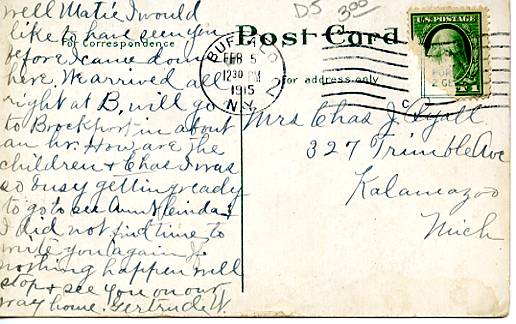 D5 3.00
Well Matie I would
like to have seen you
before I came down
here. We arrived all
right at B. will go
to Brockport in about
an hr. How are the
children & Chas I was
so busy getting ready
to go to see Ann &
I did not find time to
write you again If
nothing happen will
stop & see you on our
way home. Gertrude W.
For Correspondence
Post Card
for address only
BUFFALO
FEB 5
1230 PM
1915
N.Y.
2
C
U.S. POSTAGE
Mrs Chas J. Pyatt
327 Trimble Ave
Kalamazoo
Mich